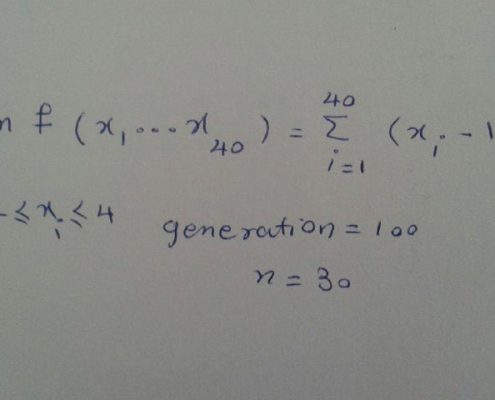 n f (x₁ ... x₄₀) = ∑_{i=1}^{40} (xᵢ - 1
≤ xᵢ ≤ 4 generation = 100
n = 30